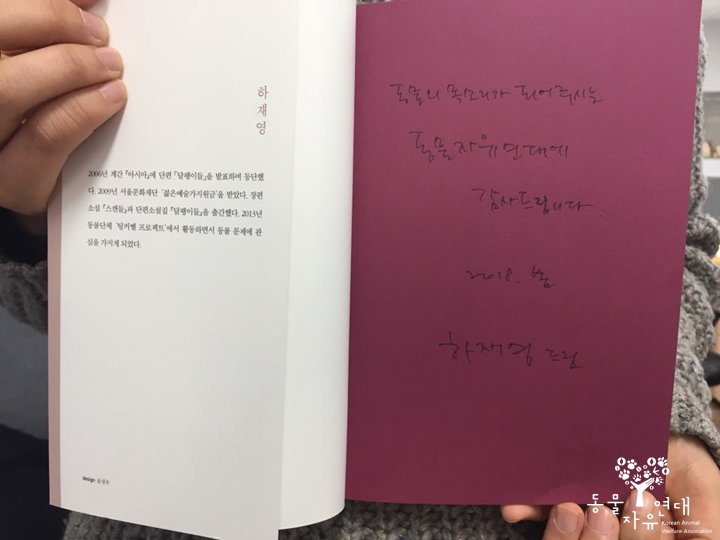 하재영
2006년 계간 『아시아』에 단편 「달팽이들」을 발표하며 등단했
다. 2009년 서울문화재단 '젊은예술가지원금'을 받았다. 장편
소설 『스캔들』과 단편소설집 『달팽이들』을 출간했다. 2013년
동물단체 '팅커벨 프로젝트'에서 활동하면서 동물 문제에 관
심을 가지게 되었다.
design
동물의 목소리가 되어주시는
동물자유연대에
감사드립니다.
2018. 봄
하재영 드림
동물
자유연대
Korean Animal
Welfare Association